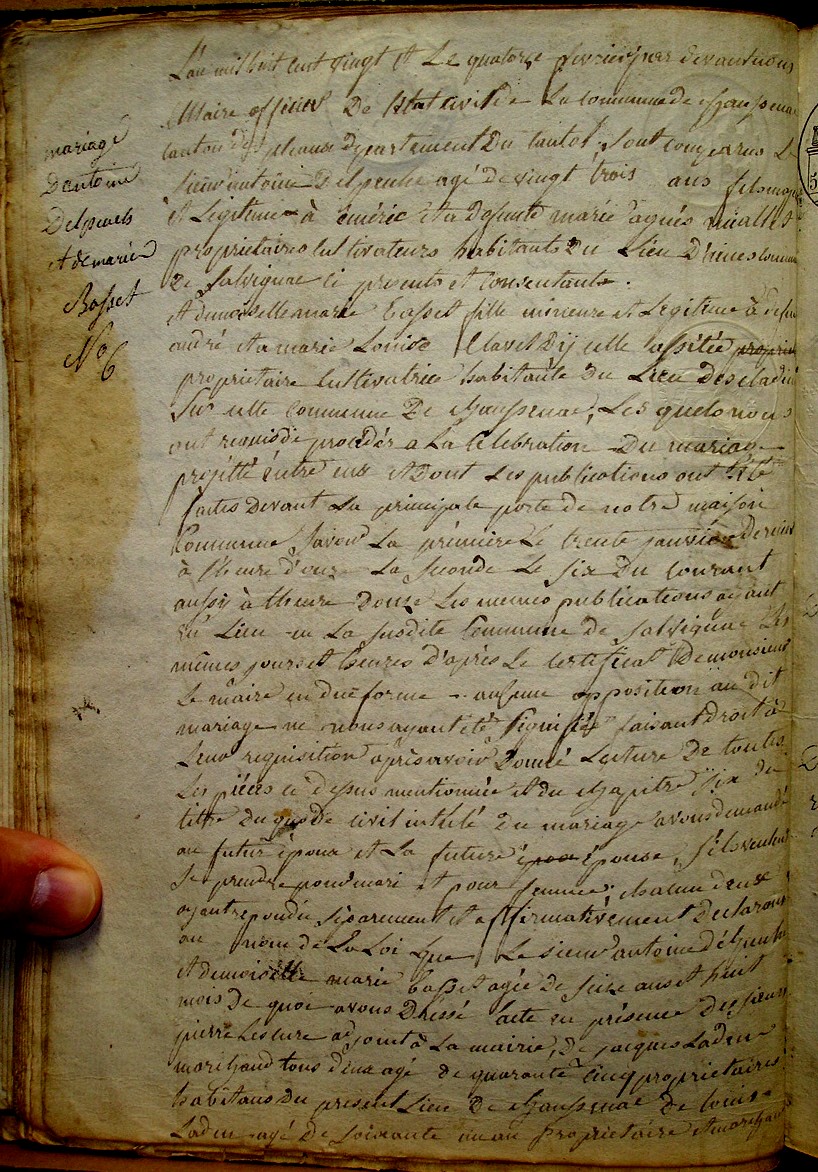 mariage
D'antoine
Delpeuch
et de marie
Basset
N° 6
L'an mil huit cent vingt et le quatorze fevrier par devant nous
Maire officier De l'état civil de la commune de chaussenac
canton de pleaux departement Du Cantal, sont comparus Le
sieur antoine Delpeuche agé de vingt trois ans fils majeur
et Legitime à emeric et a defunte marie agnés
proprietaires Cultivateurs habitants Du Lieu D'
De Salvignac ci presents et consentants.
et demoiselle marie Basset fille mineure et Legitime à defunt
andré et a marie Louise Clavel Dijcelle assistée
proprietaire Cultivatrice habitante Du Lieu
Sur celle commune De chaussenac, Les quels nous
ont requis de procéder a La Celebration Du mariage
projétté entre eux et Dont Les publications ont été
faites Devant La principale porte de notre maison
Commune savoir La prémière Le trente janvier Dernier
à l'heure d'onze La seconde Le six Du Courant
aussy à lheure Douse Les memes publications ayant
eu Lieu en La susdite Commune de Salvignac Les
mêmes jours et heures D'après Le Certificat De monsieur
Le maire en due forme - aucune opposition au dit
mariage ne nous ayant eté signifiée faisant droit à
Leur requisition après avoir Donné Lecture De toutes
Les pièces ci dessus mentionnée et du chapitre six du
titre Du code civil intitulé Du mariage avons demandé
au futur époux et La future épouse, s'ils veulent
se prendre pour mari et pour femme, chacun deux
ayant repondu séparement et affirmativement Declarons
au nom de La Loi que Le sieur antoine delpeuche
et demoiselle marie basset agée de seise ans et huit
mois de quoi avons Dréssé acte en présence des sieurs
pierre Lescure adjoint à La mairie, de jacques Laden
marchand tous deux agé de quarante cinq proprietaires
habitans Du present Lieu De chaussenac de Louis
Laden agé de soixante un an proprietaire et marchand